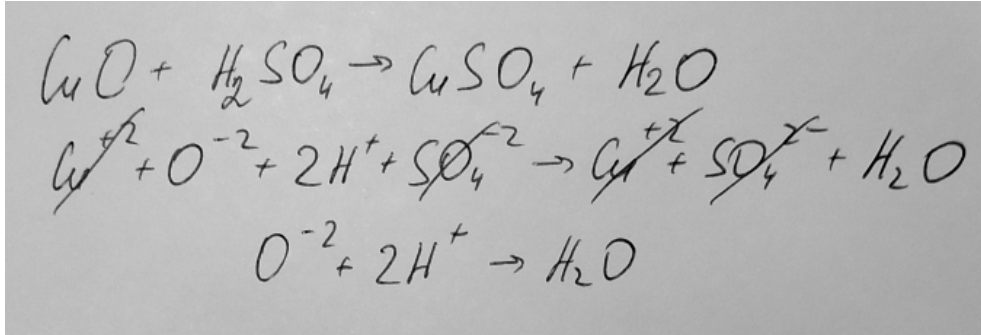 CuO + H₂SO₄ → CuSO₄ + H₂O
Cu⁺² + O⁻² + 2H⁺ + SO₄⁻² → Cu⁺² + SO₄²⁻ + H₂O
O⁻² + 2H⁺ → H₂O